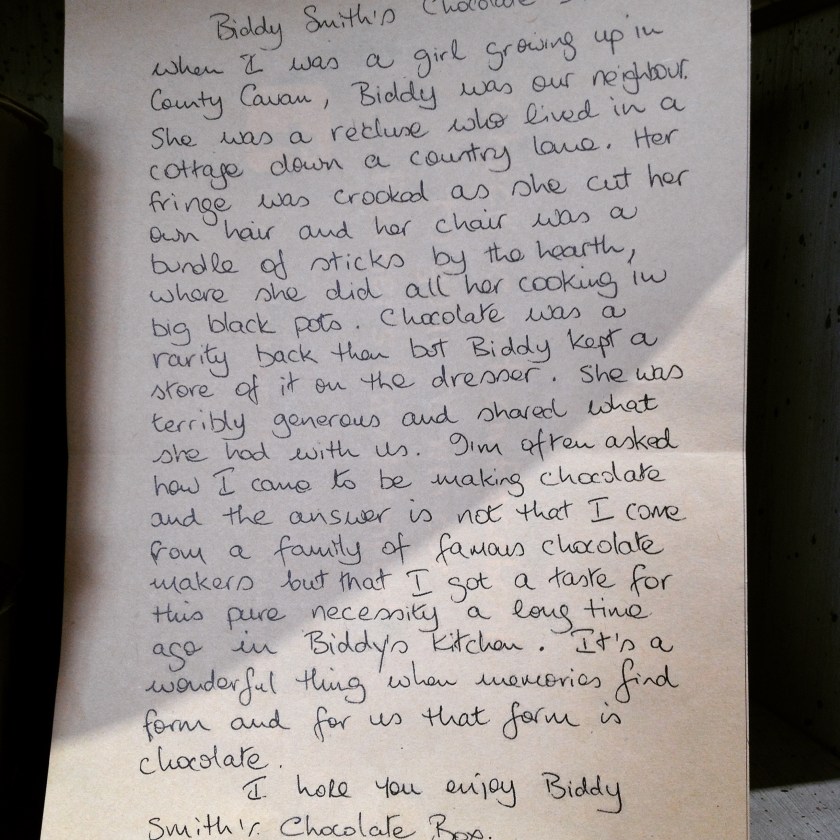 Biddy Smith's Chocolate
when I was a girl growing up in
County Cavan, Biddy was our neighbour.
She was a recluse who lived in a
cottage down a country lane. Her
fringe was crooked as she cut her
own hair and her chair was a
bundle of sticks by the hearth,
where she did all her cooking in
big black pots. Chocolate was a
rarity back then but Biddy kept a
store of it on the dresser. She was
terribly generous and shared what
she had with us. I'm often asked
how I came to be making chocolate
and the answer is not that I come
from a family of famous chocolate
makers but that I got a taste for
this pure necessity a long time
ago in Biddy's kitchen. It's a
wonderful thing when memories find
form and for us that form is
chocolate.
I hope you enjoy Biddy
Smith's Chocolate Box.